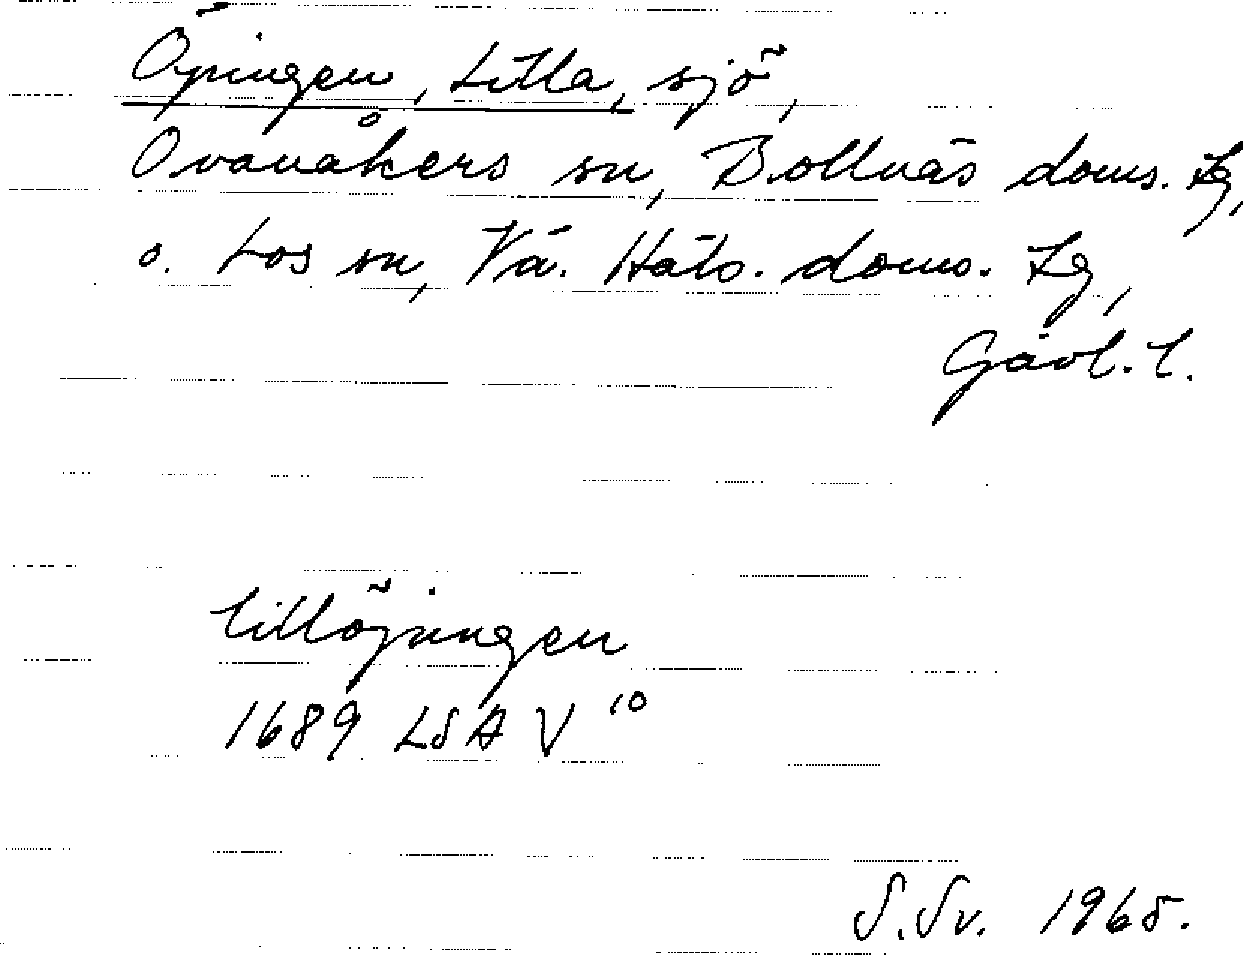 Öjungen, Lilla, sjö,
Ovanåkers sn, Bollnäs doms. Lg,
o. Los sn, Vä. Häls. doms. Lg,
Gävl. l.
lillöjungen
1689 LSA V 10
S.Sv. 1965.